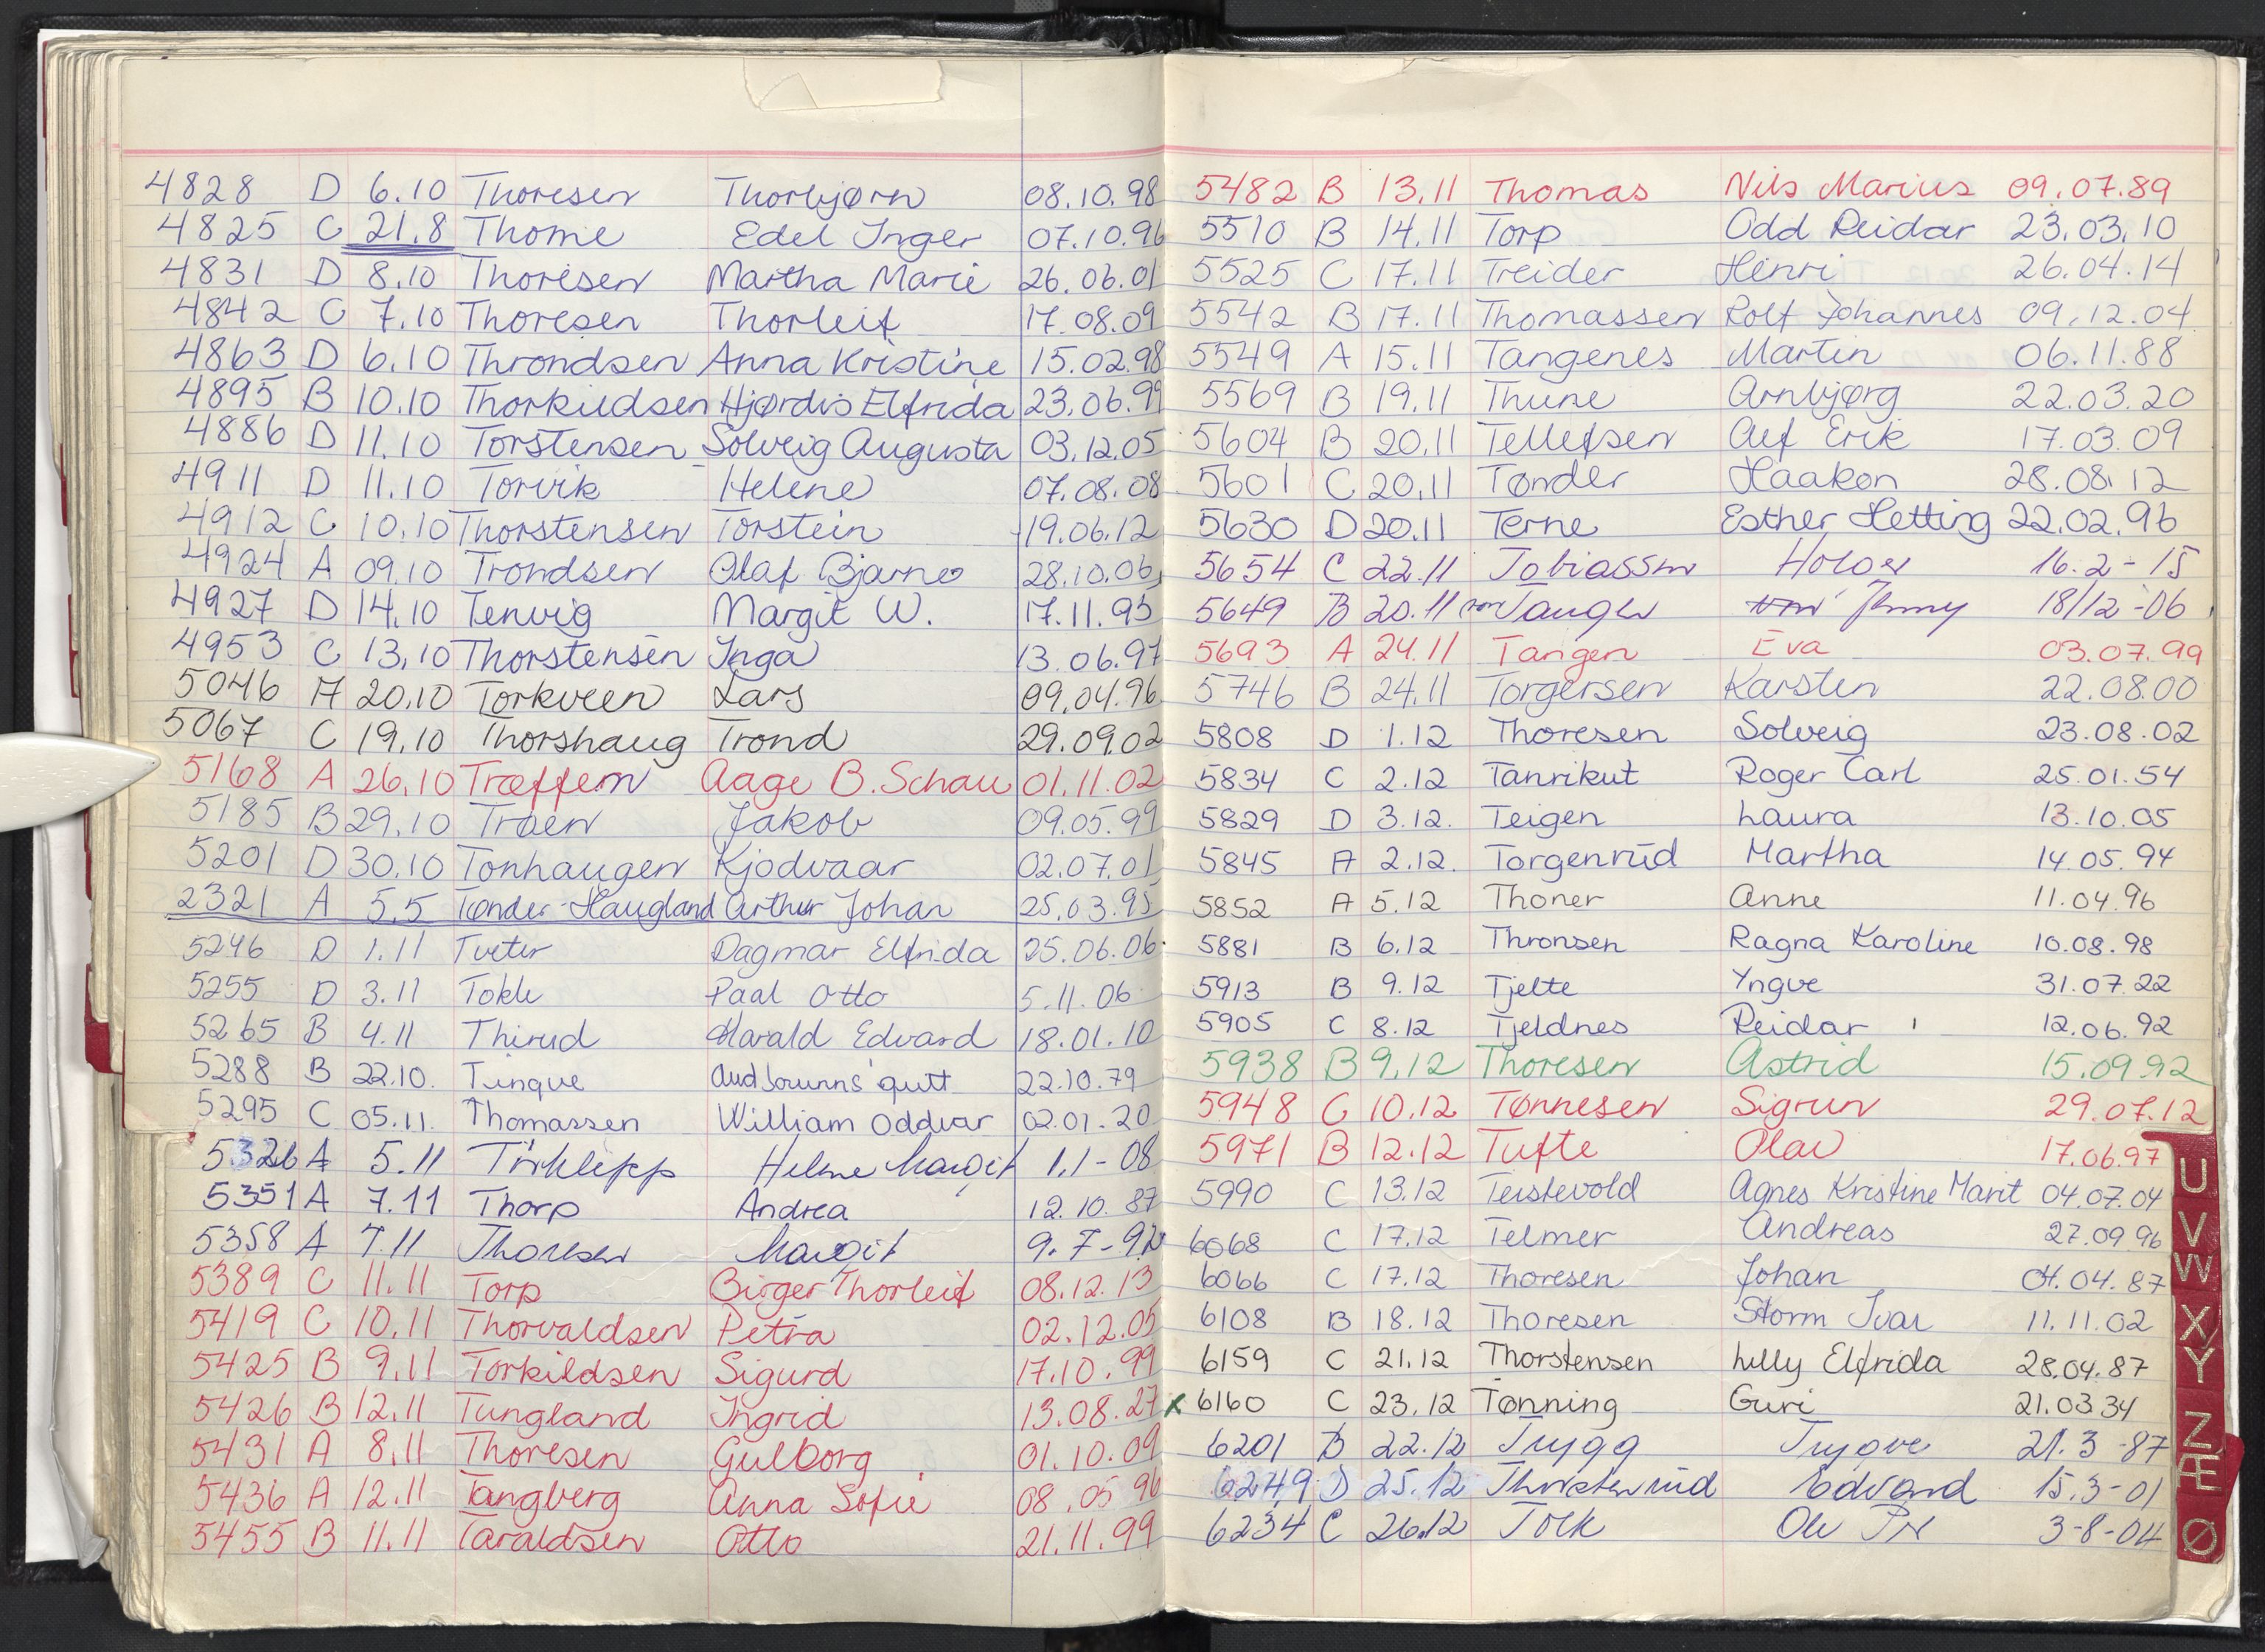 4828 D 6.10 Thoresen Thorbjørn 08.10.98
4825 C 21.8 Thome Edel Inger 07.10.96
4831 D 8.10 Thoresen Martha Marie 26.06.01
4842 C 7.10 Thoresen Thorleif 17.08.09
4863 D 6.10 Throndsen Anna Kristine 15.02.98
4895 B 10.10 Thorkildsen Hjørdis Elfrida 23.06.99
4886 D 11.10 Torstensen Solveig Augusta 03.12.05
4911 D 11.10 Torvik Helene 07.08.08
4912 C 10.10 Thorstensen Torstein 19.06.12
4924 A 09.10 Trondsen Olaf Bjarne 28.10.06
4927 D 14.10 Tenvig Margit W. 17.11.95
4953 C 13.10 Thorstensen Inga 13.06.97
5046 A 20.10 Torkveen Lars 09.04.96
5067 C 19.10 Thorshaug Trond 29.09.02
5168 A 26.10 Træffern Aage B. Schau 01.11.02
5185 B 29.10 Trøen Jakob 09.05.99
5201 D 30.10 Tonhaugen Kjodvaar 02.07.01
2321 A 5.5 Tønder-Haugland Arthur Johan 25.03.95
5246 D 1.11 Tveter Dagmar Elfrida 25.06.06
5255 D 3.11 Tokle Paal Otto 5.11.06
5265 B 4.11 Thirud Harald Edvard 18.01.10
5288 B 22.10. Tingve gutt 22.10.79
5295 C 05.11. Thomassen William Oddvar 02.01.20
5326 A 5.11 Margit 1.1-08
5351 A 7.11 Thorp Andrea 12.10.87
5358 A 7.11 Thoresen Margit 9.7-92
5389 C 11.11 Torp Birger Thorleif 08.12.13
5419 C 10.11 Thorvaldsen Petra 02.12.05
5425 B 9.11 Torkildsen Sigurd 17.10.99
5426 B 12.11 Tungland Ingrid 13.08.27
5431 A 8.11 Thoresen Gulborg 01.10.09
5436 A 12.11 Tangberg Anna Sofie 08.05 96
5455 B 11.11 Taraldsen Otto 21.11.99
5482 B 13.11 Thomas Nils Marius 09.07.89
5510 B 14.11 Torp Odd Reidar 23.03.10
5525 C 17.11 Treider Henri 26.04.14
5542 B 17.11 Thomassen Rolf Johannes 09.12.04
5549 A 15.11 Tangenes Martin 06.11.88
5569 B 19.11 Thune Arnbjørg 22.03.20
5604 B 20.11 Tellefsen Alf Erik 17.03.09
5601 C 20.11 Tønder Haakon 28.08.12
5630 D 20.11 Terne Esther Hetting 22.02.96
5654 C 22.11 Tobiassen Holger 16.2-15
5649 B 20.11 von Tangen von Jenny 18/12-06
5693 A 24.11 Tangen Eva 03.07.99
5746 B 24.11 Torgersen Karsten 22.08.00
5808 D 1.12 Thoresen Solveig 23.08.02
5834 C 2.12 Tanrikut Roger Carl 25.01.54
5829 D 3.12. Teigen Laura 13.10.05
5845 A 2.12. Torgenrud Martha 14.05.94
5852 A 5.12 Thoner Anne 11.04.96
5881 B 6.12 Thronsen Ragna Karoline 10.08.98
5913 B 9.12 Tjelte Yngve 31.07.22
5905 C 8.12 Tjeldnes Reidar 12.06.92
5938 B 9.12 Thoresen Astrid 15.09.92
5948 C 10.12 Tønnesen Sigrun 29.07.12
5971 B 12.12 Tufte Olav 17.06.97
5990 C 13.12 Teistevold Agnes Kristine Marit 04.07.04
6068 C 17.12 Telmer Andreas 27.09 96
6066 C 17.12 Thoresen Johan 04.04.87
6108 B 18.12 Thoresen Storm Ivar 11.11.02
6159 C 21.12 Thorstensen Lilly Elfrida 28.04.87
x 6160 C 23.12 Tønning Guri 21.03 34
6201 B 22.12 Trygg Trygve 21.3-87
6249 D 25.12 Thorstenrud Edvard 15.3-01
6234 C 26.12 Tolk Ole 3-8-04
U
V
W
X
Y
Z
Æ
Ø